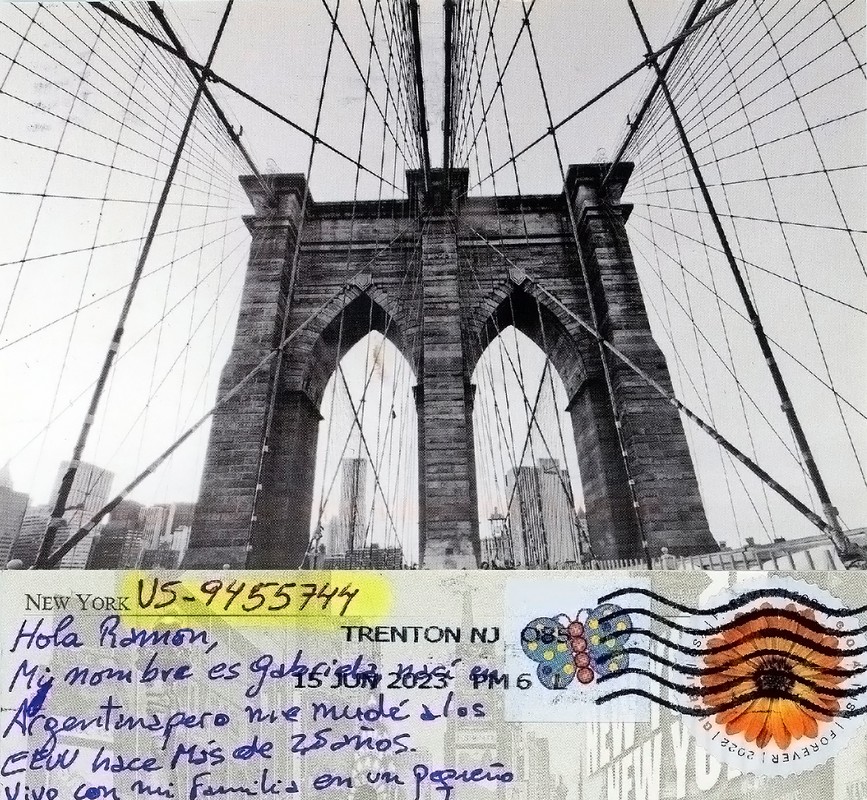 NEW YORK US-9455744
Hola Ramon,
TRENTON NJ 085
Mi nombre es Gabriela nací en
15 JUN 2023 PM 6 L
Argentina pero me mudé a los
EEUU hace Más de 25 años.
Vivo con mi Familia en un pequeño
FOREVER
NEW YORK